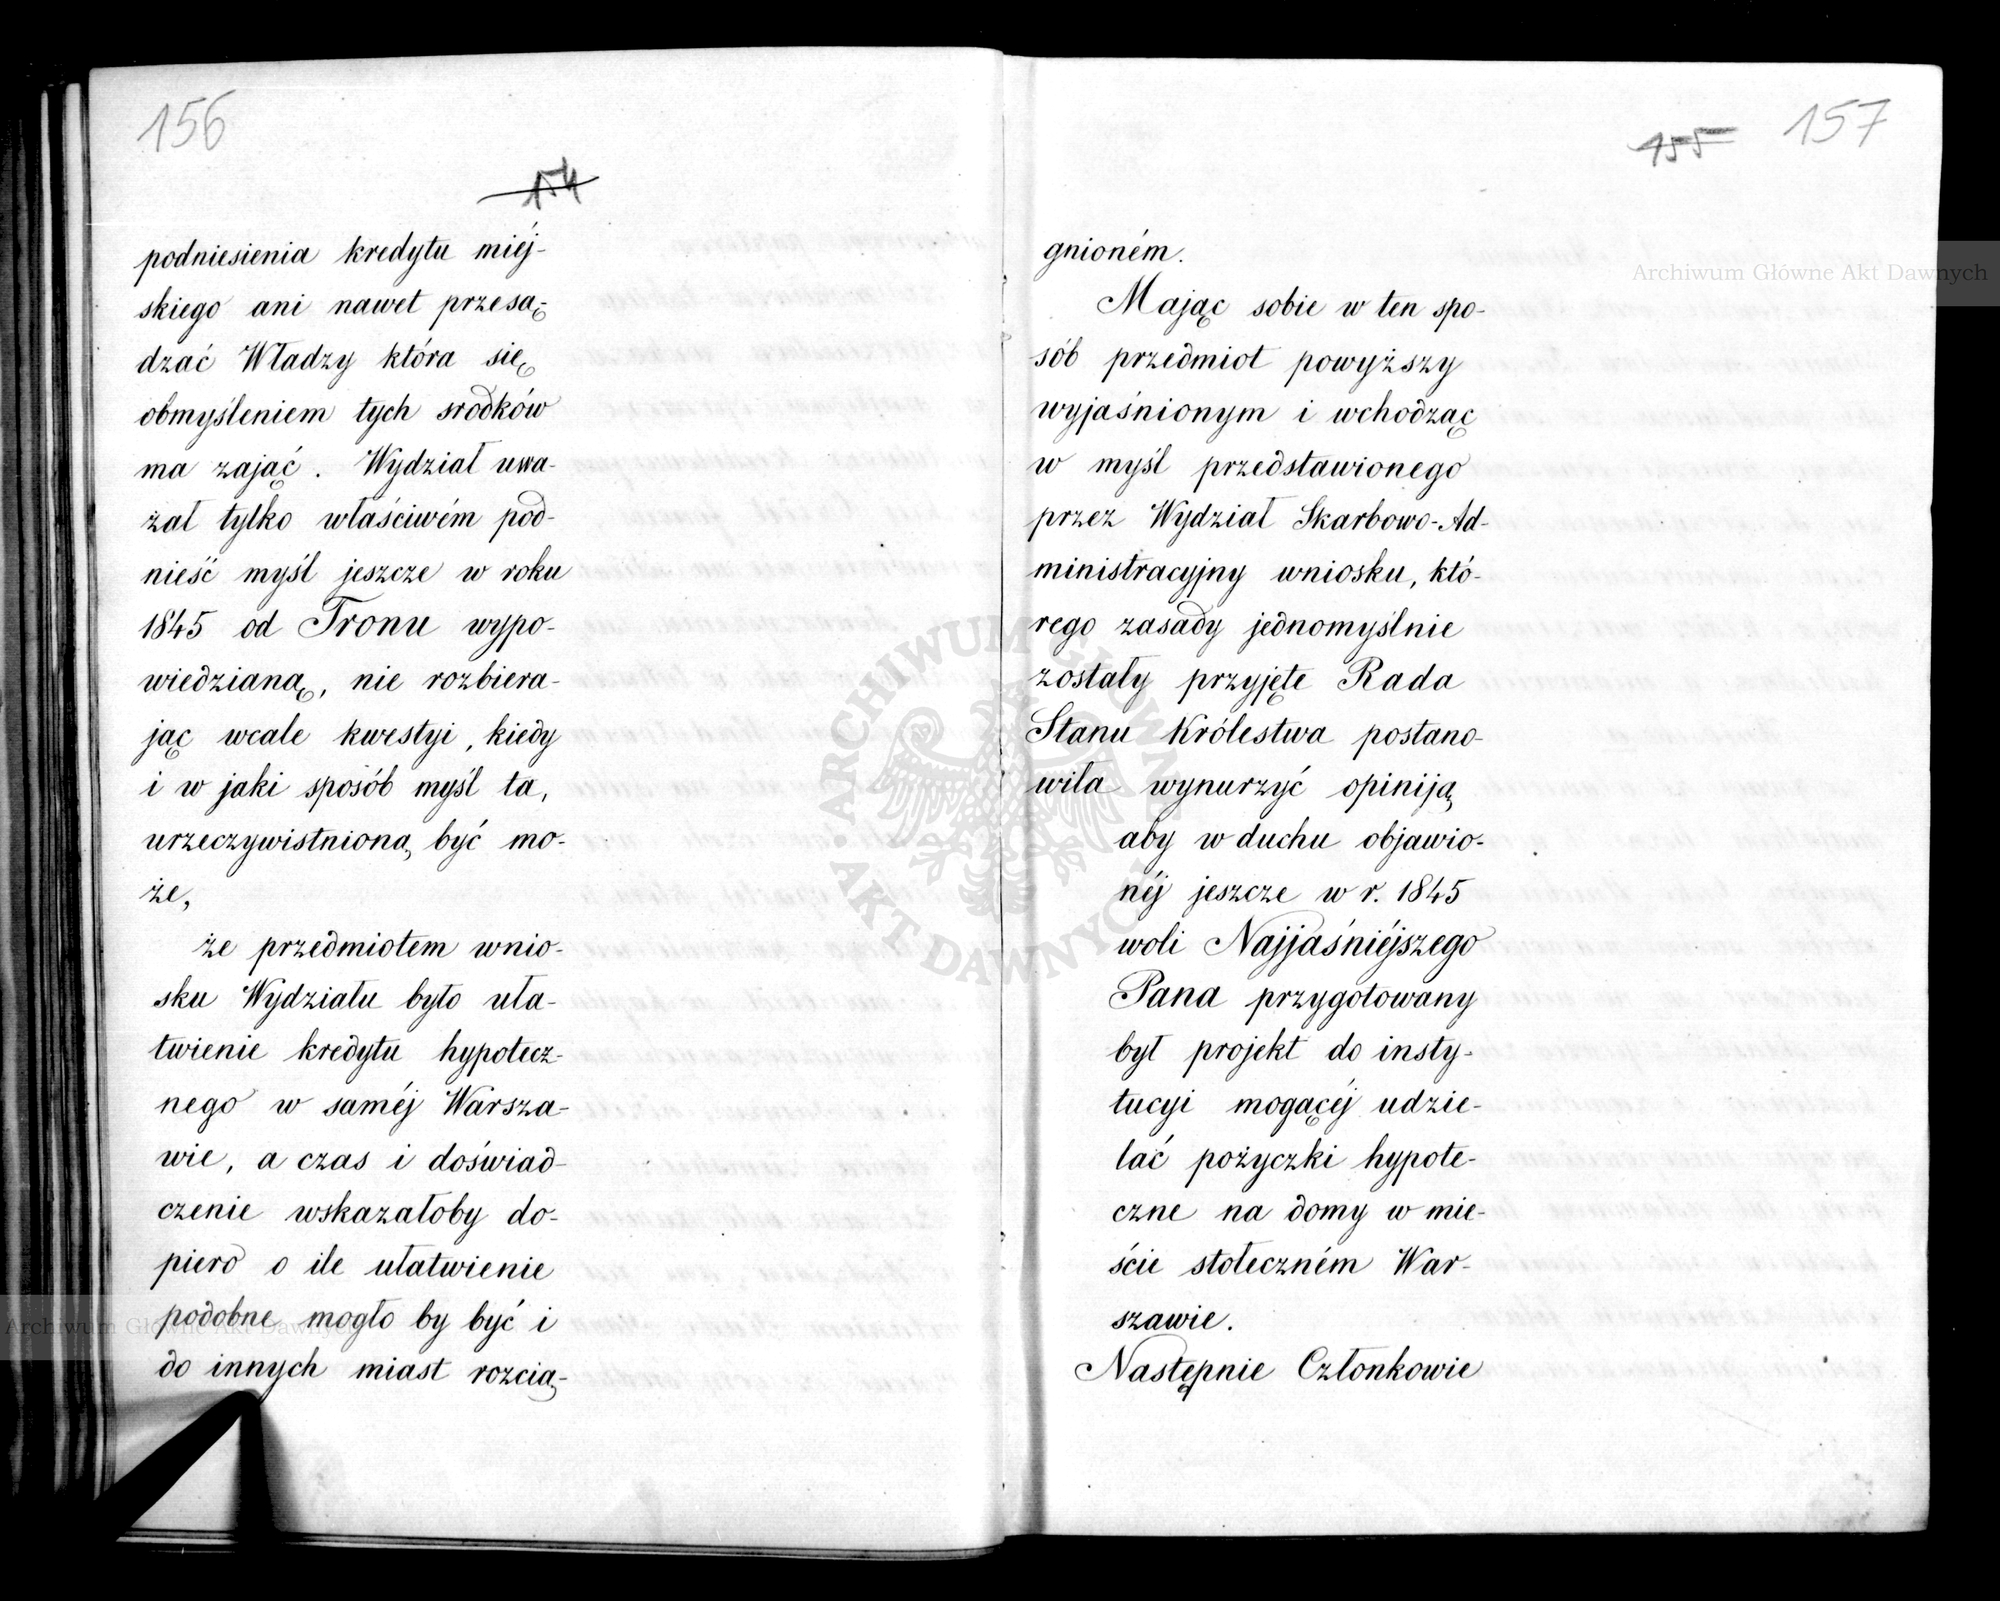 156
154
podniesienia kredytu miéj-
skiego ani nawet przesą-
dzać Władzy która się
obmyśleniem tych srodków
ma zająć. Wydział uwa-
żał tylko właściwém pod-
nieść myśl jeszcze w roku
1845 od Tronu wypo-
wiedzianą, nie rozbiera-
jąc wcale kwestyi, kiedy
i w jaki sposób myśl ta,
urzeczywistnioną być mo-
że,
że przedmiotem wnio-
sku Wydziału było uła-
twienie kredytu hypotecz-
nego w saméj Warsza-
wie, a czas i doświad-
czenie wskazałoby do-
piero o ile ułatwienie
podobne mogło by być i
do innych miast rozcią-
157
155
gnioném.
Mając sobie w ten spo-
sób przedmiot powyższy
wyjaśnionym i wchodząc
w myśl przedstawionego
przez Wydział Skarbowo-Ad-
ministracyjny wniosku, któ-
rego zasady jednomyślnie
zostały przyjęte Rada
Stanu Królestwa postano-
wiła wynurzyć opiniją
aby w duchu objawio-
néj jeszcze w r. 1845
woli Najjaśniéjszego
Pana przygotowany
był projekt do insty-
tucyi mogącéj udzie-
lać pożyczki hypote-
czne na domy w mie-
ście stołeczném War-
szawie.
Następnie Członkowie
Archiwum Główne Akt Dawnych
Archiwum Główne Akt Dawnych
ARCHIWUM GŁÓWNE AKT DAWNYCH